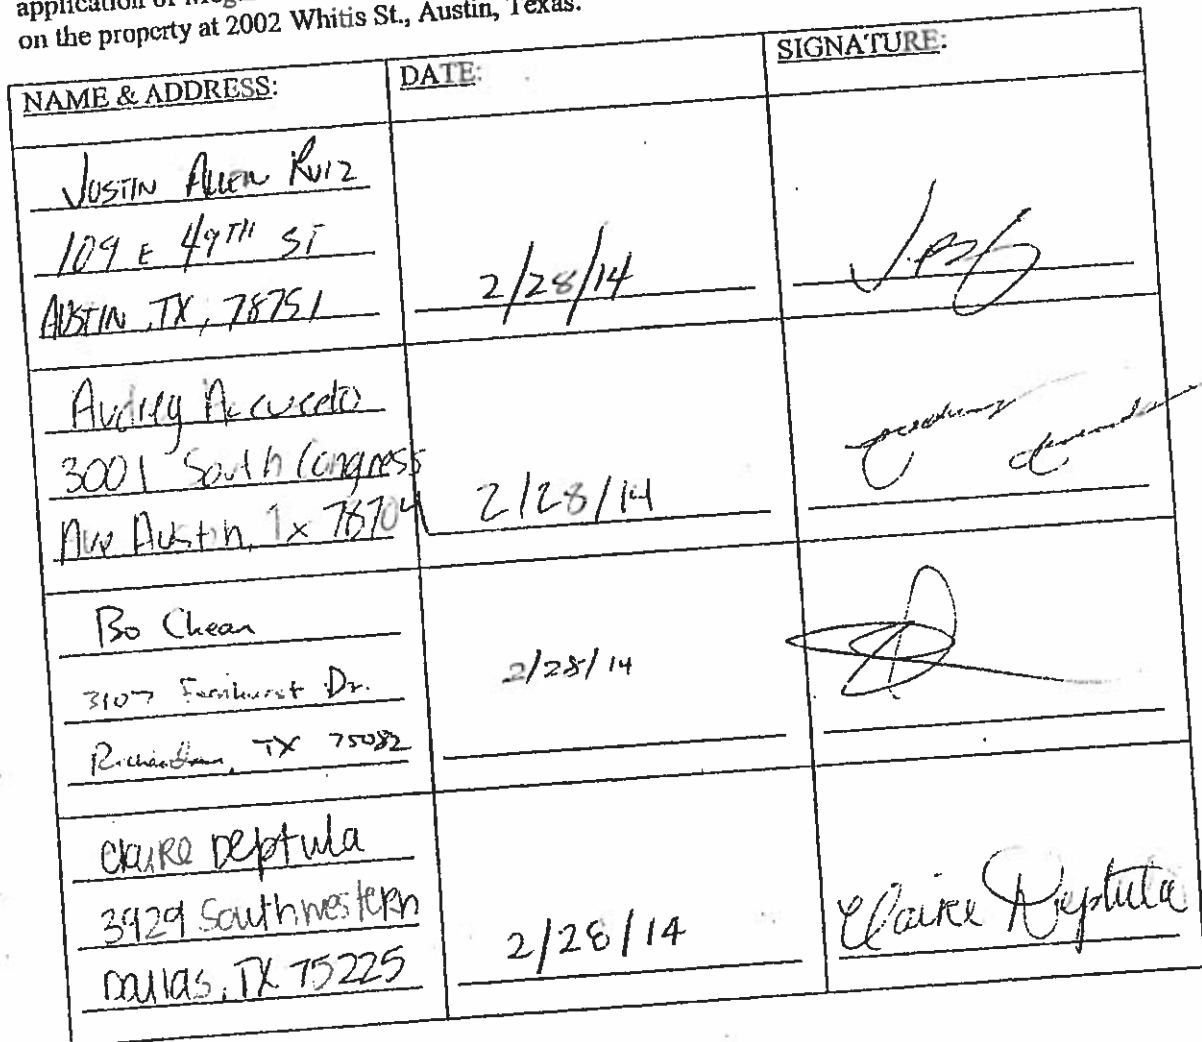 application of
on the property at 2002 Whitis St., Austin, Texas.
NAME & ADDRESS: DATE: SIGNATURE:
JUSTIN ALLEN RUIZ
109 E 49TH ST
AUSTIN, TX, 78751
2/28/14
Audrey
3001 South Congress
Ave Austin, Tx 78704
2/28/14
Bo Chean
3107 Dr.
Richardson, TX 75082
2/28/14
Claire Deptula
3929 Southwestern
Dallas, TX 75225
2/28/14
Claire Deptula